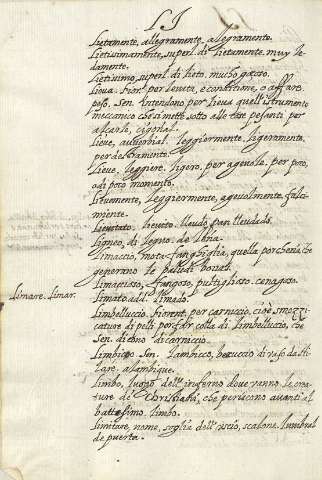 L I
Lietamente, allegramente, allegramente.
Lietissimamente, superl. di Lietamente. muy le
damente.
Lietissimo, superl. di lieto. mucho gozoso.
Lieva. Fior. per levata, e conditione, o affare
peso. Sen. Intendono per Lieva quell'istrumento
meccanico che si mette sotto alle cose pesanti per
alzarle, cigoñal.
Lieve, auverbial. leggiermente. ligeramente.
per destramente.
Lieve. leggiere. ligero, per agevole. per poco,
o di poco momento.
Lievemente, leggiermente, agevolmente, facil
mente.
Lievitato. lievito. lleudo, pan lleudado.
Ligneo, di legno, de
Limaccio, mota, fanghiglia, quella porcheria che
generano le paludi
Limaccioso, fangoso, pultiglioso. cenagoso.
Limare. Limar.
Limato add. limado.
Limbelluccio. Fiorent. per carniccio, cioè smozzi
cature di peli per far colla di Limbelluccio, che
Sen. dicono di carniccio.
Limbicco. Sen. Lambicco, beccuccio di vaso da sti
lare. alambique.
Limbo, luogo dell'inferno dove vanno le crea
ture de' Christiani, che periscono avanti al
battesimo. limbo.
Limitare, nome, soglia dell'uscio, scalone. lumbral
de puerta.